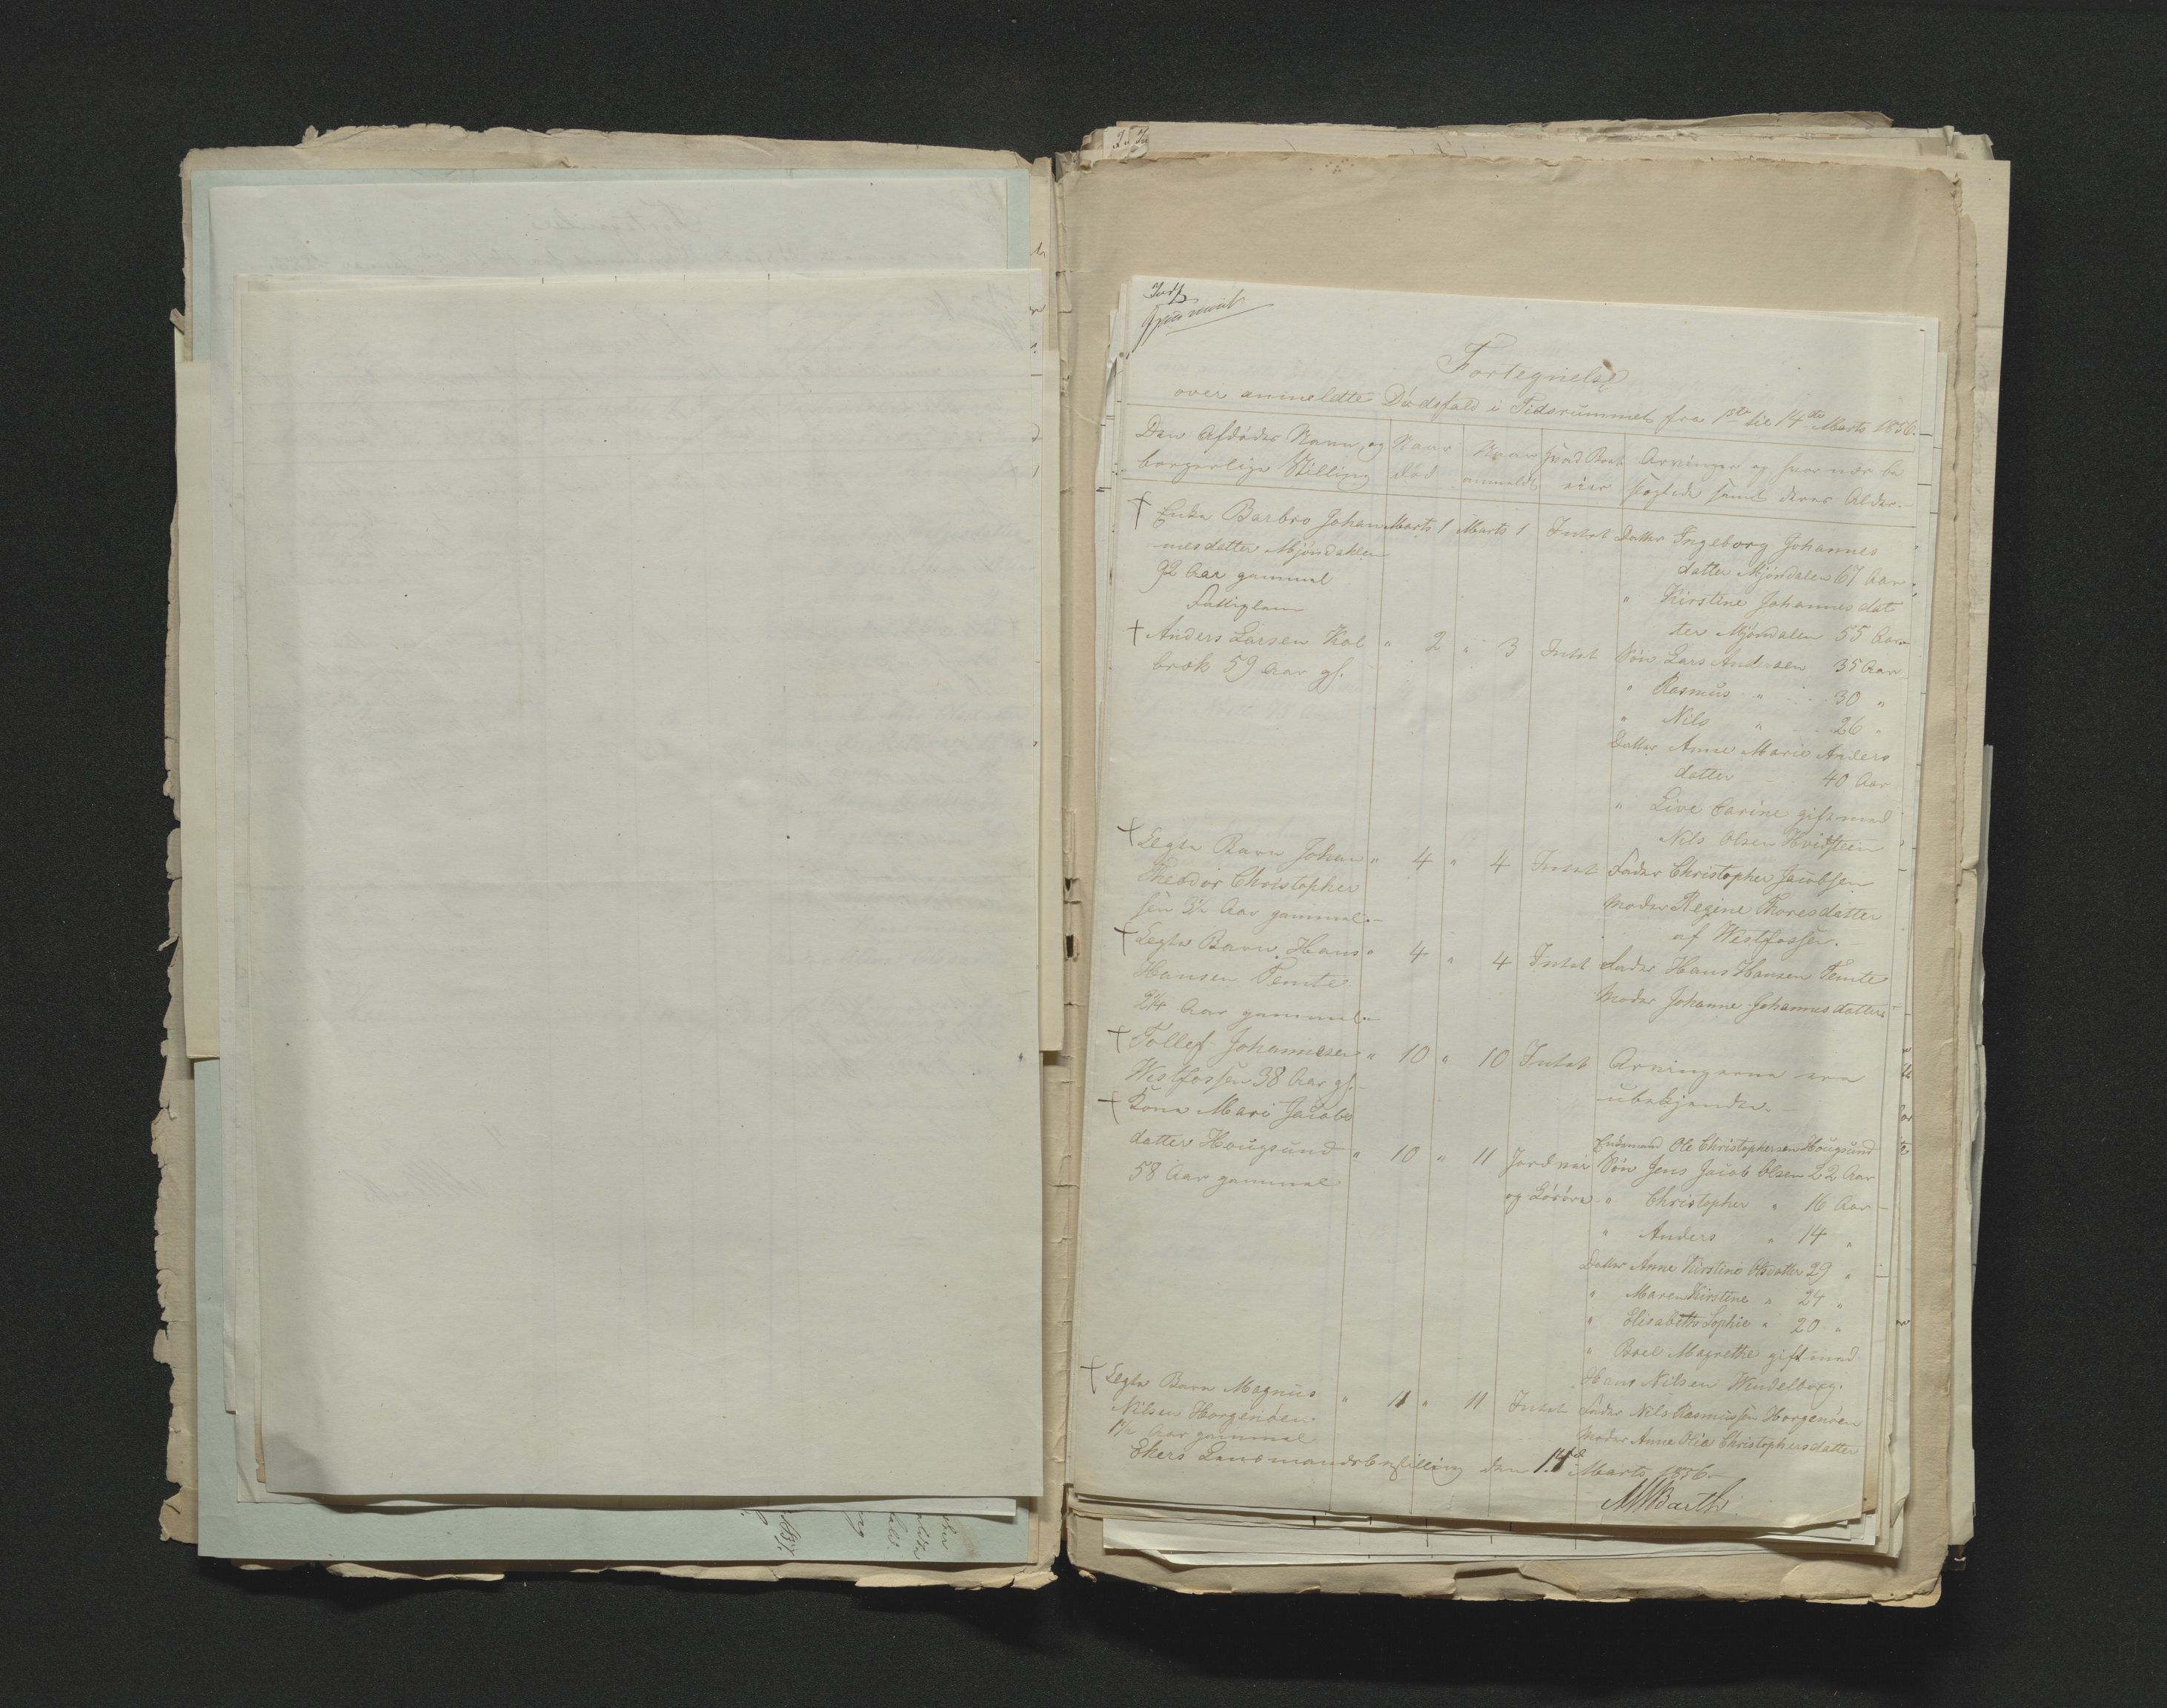 Fortegnelse
over anmeldte Dødsfald i Tidsrummet fra 1ste til 14de Marts 1856.
Den Afdødes Navn og Naar Naar hvad Boet Arvinger og hvor nær be
borgerlige Stilling død anmeldt eier slægtede samt deres Alder.
† Enke Barbro Johan Marts 1 Marts 1 Intet Datter Ingeborg Johannes
nesdatter Mjøndalen datter Mjøndalen 67 Aar
92 Aar gammel " Kirstine Johannesdat
Fattiglem ter Mjøndalen 55 Aar
† Anders Larsen Kol " 2 " 3 Intet Søn Lars Andersen 35 Aar
brok 59 Aar gl. " Rasmus " 30 "
" Nils " 26 "
Datter Anne Marie Anders
datter 40 Aar
" Live Carine gift med
Nils Olsen Hvidsteen
† Ægte Barn Johan " 4 " 4 Intet Fader Christopher Jacobsen
Theodor Christopher Moder Regine Thoresdatter
sen 3½ Aar gammel. af Westfossen.
† Ægte Barn Hans " 4 " 4 Intet Fader Hans Hansen Temte
Hansen Temte Moder Johanne Johannesdatter
2¼ Aar gammel
† Tollef Johannesen " 10 " 10 Intet Arvingerne ere
Westfossen 38 Aar gl. ubekjendte.
† Kone Mari Jacobs Enkemand Ole Christophersen Hougsund
datter Hougsund " 10 " 11 Jordveie Søn Jens Jacob Olsen 22 Aar
58 Aar gammel og Løsøre " Christopher " 16 Aar
" Anders " 14 "
Datter Anne Kirstine Olsdatter 29 "
" Maren Kirstine " 24 "
" Elisabeth Sophie " 20 "
" Boel Magrethe gift med
Hans Nilsen Wendelborg.
† Ægte Barn Magnus " 11 " 11 Intet Fader Nils Rasmussen Horgenøen
Nilsen Horgenøen Moder Anne Olia Christophersdatter
1½ Aar gammel
Ekers Lensmandsbestilling den 14de Marts 1856.
MBarth